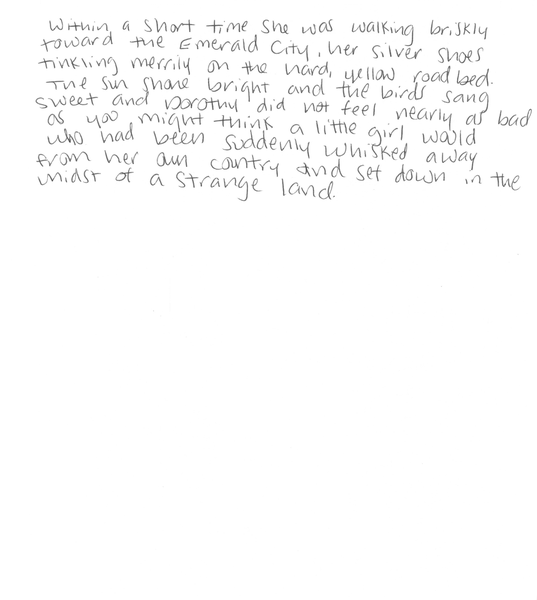 Within a short time she was walking briskly
toward the Emerald City, her silver shoes
tinkling merrily on the hard, yellow road bed.
The sun shone bright and the birds sang
sweet and Dorothy did not feel nearly as bad
as you might think a little girl would
who had been suddenly whisked away
from her own country and set down in the
midst of a strange land.